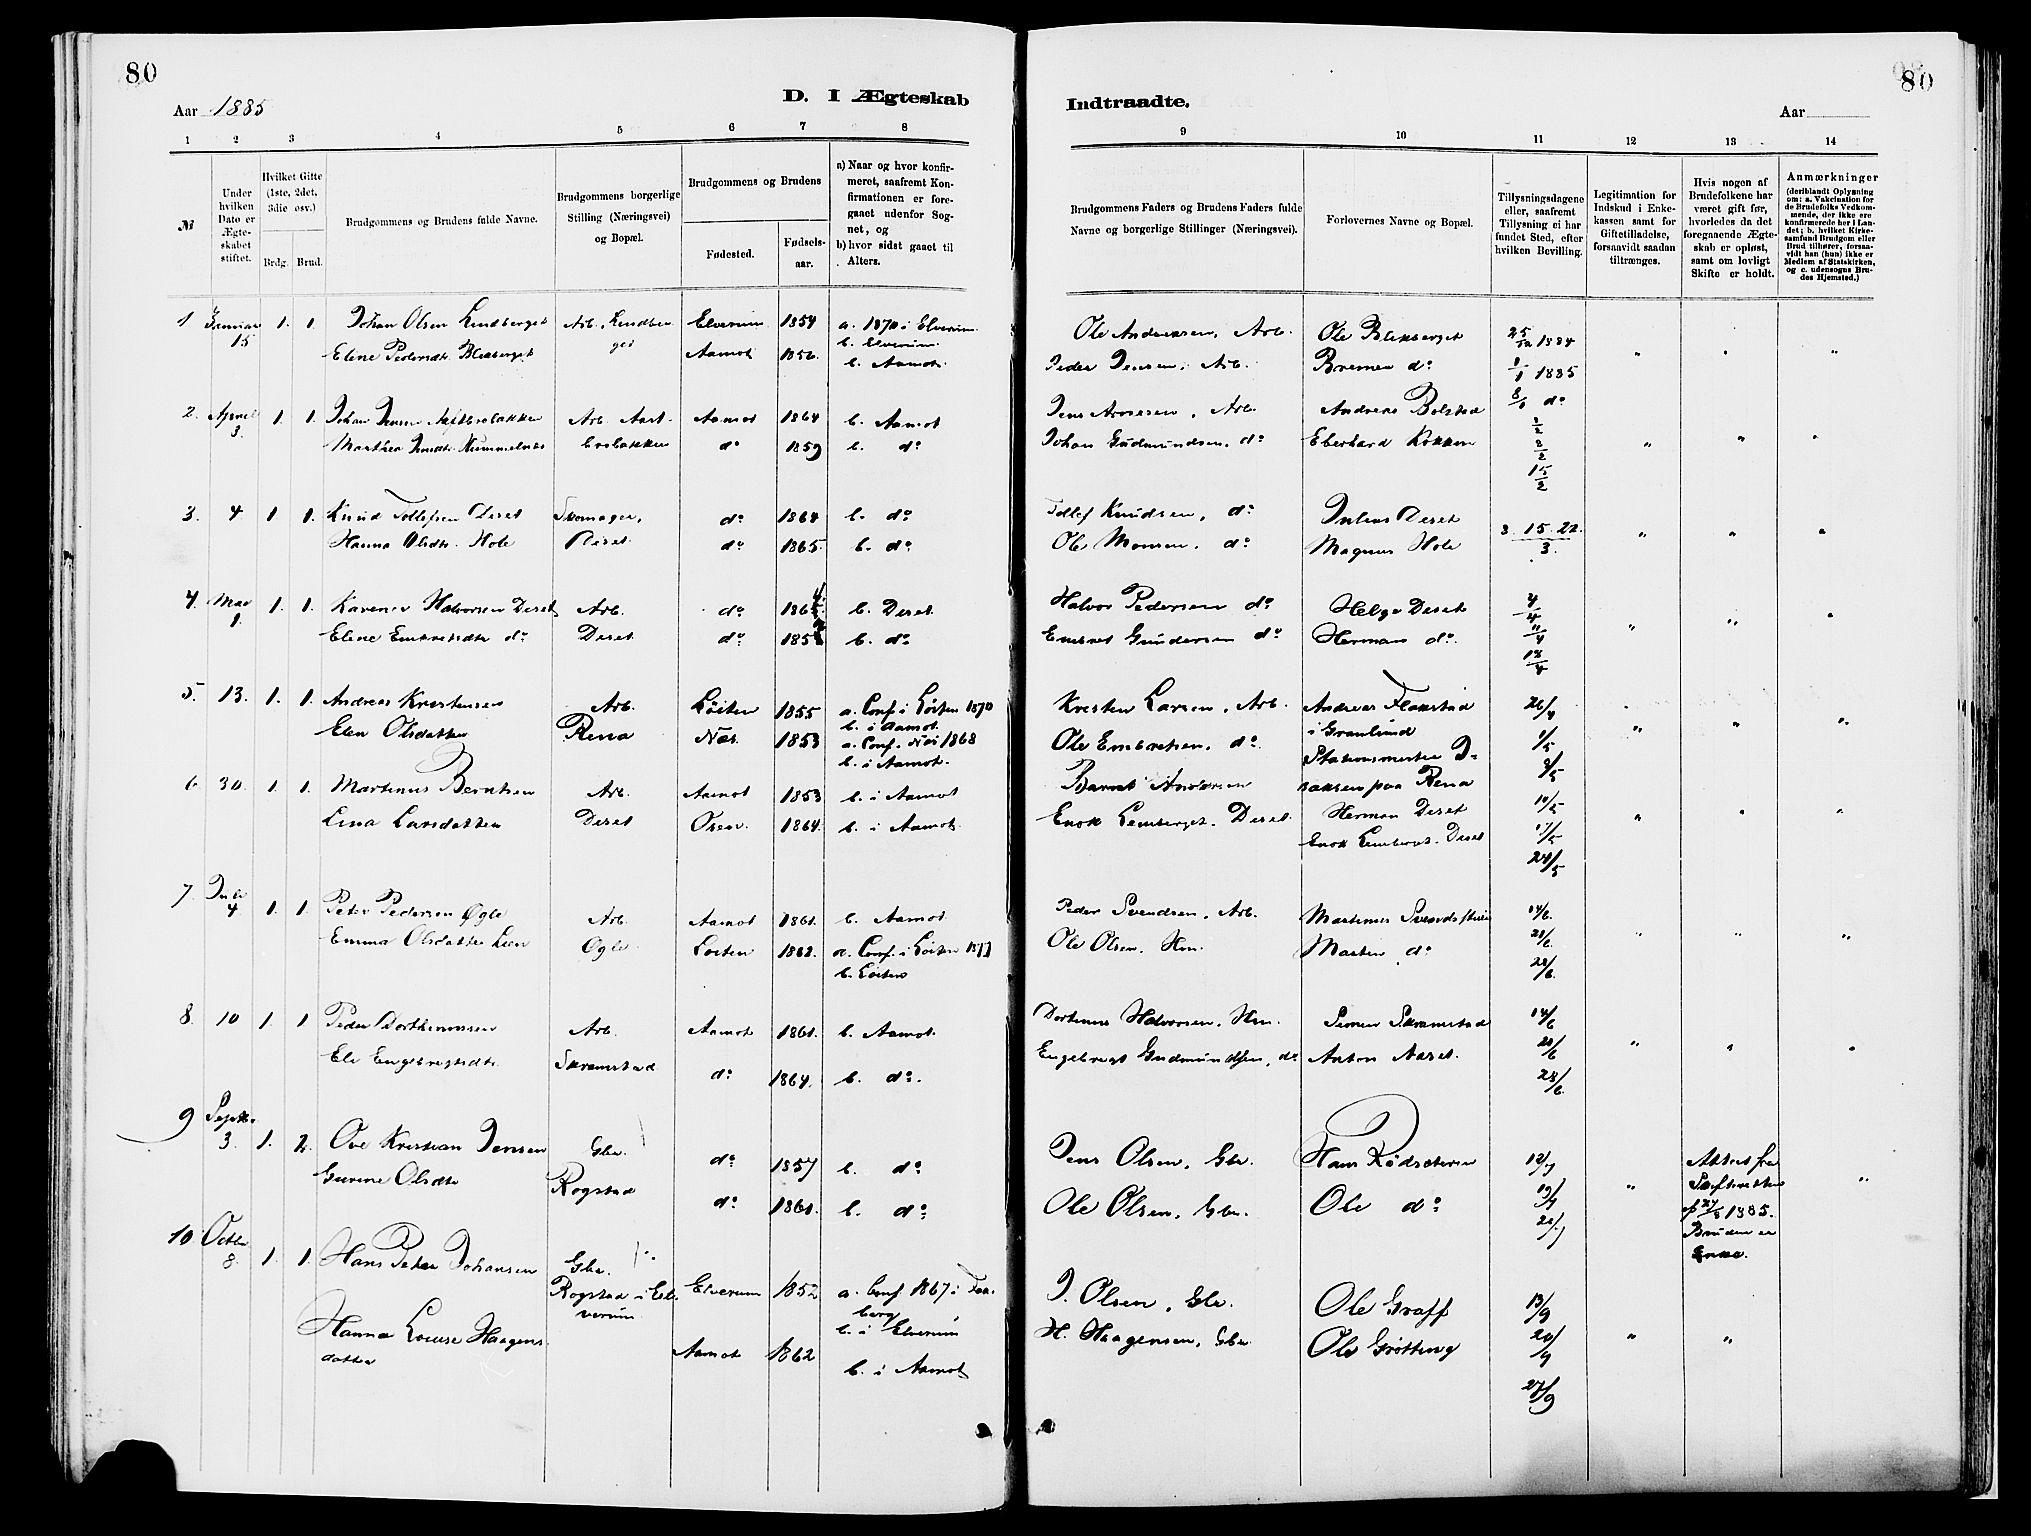 80
80
Aar 1885
D. I Ægteskab
Indtraadte.
Aar
1 2 3 4 5 6 7 8
9 10 11 12 13 14
№
Under hvilken Dato er Ægteskabet stiftet.
Hvilket Gifte (1ste, 2det, 3die osv.)
Brdg. Brud.
Brudgommens og Brudens fulde Navne.
Brudgommens borgerlige Stilling (Næringsvei) og Bopæl.
Brudgommens og Brudens
Fødested.
Fødselsaar.
a) Naar og hvor konfirmeret, saafremt Konfirmationen er foregaaet udenfor Sognet, og
b) hvor sidst gaaet til Alters.
Brudgommens Faders og Brudens Faders fulde Navne og borgerlige Stillinger (Næringsvei).
Forlovernes Navne og Bopæl.
Tillysningsdagene eller, saafremt Tillysning ei har fundet Sted, efter hvilken Bevilling.
Legitimation for Indskud i Enkekassen samt for Giftetilladelse, forsaavidt saadan tiltrænges.
Hvis nogen af Brudefolkene har været gift før, hvorledes da det foregaaende Ægteskab er opløst, samt om lovligt Skifte er holdt.
Anmærkninger
(deriblandt Oplysning om: a. Vakcination for de Brudefolks Vedkommende, der ikke ere konfirmerede her i Landet; b. hvilket Kirkesamfund Brudgom eller Brud tilhører, forsaavidt han (hun) ikke er Medlem af Statskirken, og c. udensogns Brudes Hjemsted.)
1 Januar 15 1. 1. Johan Olsen Lindberget Arb. Lindberget Elverum 1854 a. 1870 i Elverum b. Elverum Ole Andreasen, Arb. Ole Blekberget 25/12 1884
Elene Pedersdtr. Blekberget Aamot 1856. b. Aamot. Peder Jensen, Arb. Bremen do 1/1 1885 " " "
8/1 do
2. April 3. 1. 1. Johan Jensen Arb. Aamot 1864 b. Aamot Jens Arnesen, Arb. Andreas Bolstad 1/2
do 1859 b. do Johan Gudmundsen, do Eberhard Kokken 8/2 " " "
15/2
3. 4 1 1. Knud Tollefsen Deset Skomager, do 1864 b. do Tollef Knudsen, do Julius Deset 8. 15. 22.
Hanna Olsdtr. Hole Deset do 1865. b. do Ole Monsen, do Magnus Hole 3. " " "
4. Mai 1. 1. 1. Karener Halvorsen Deset Arb. do b. Deset Halvor Pedersen do Helge Deset 4/4
Elene Embretsdtr do Deset do b. do Embret Gundersen do Herman do. 11/4 " " "
18/4
5. 13. 1. 1. Andreas Kristensen Arb. Løiten 1855 a. Conf. i Løiten 1870 b. i Aamot. Kristen Larsen, Arb. Andreas Flakstad i Granlund 26/4
Elen Olsdatter Rena Næs. 1853 a. Conf. Næs 1868 b. i Aamot. Ole Embretsen, do. Stationsmester Isaksen paa Rena 1/5 " " "
8/5
6 30. 1. 1. Martinus Berntsen Arb. Aamot 1853 b. i Aamot Bernt Andersen Herman Deset 10/5
Lina Larsdatter Deset Osen. 1864. b. i Aamot Enok Lemberget. Deset Enok Lemberget. Deset 17/5 " " "
24/5
7. Juli 4. 1. 1. Peter Pedersen Øgle Arb. Aamot 1861. b. Aamot Peder Svendsen, Arb. Martinus 14/6.
Emma Olsdatter Lien Øgle. Løiten 1862. a. Conf. i Løiten 1877 b. Løiten Ole Olsen. Hm. Morten do 21/6. " " "
28/6.
8. 10 1. 1. Peder Dorthinussen Arb. Aamot. 1861. b. Aamot. Dortinus Halvorsen, Hm. Simen Skramstad 14/6
Eli Engebregtsdtr. Skramstad do. 1864. b. do. Engebregt Gudmundsen, do Anton Aaset. 21/6 " " "
28/6
9 Septbr. 3. 1. 2. Ove Kristian Jensen Gbr. do. 1857 b. do. Jens Olsen, Gbr. Hans Rødseteren 12/7 Attest fra Skifteretten af 27/8 1885. Bruden er Enke.
Gurine Olsdtr Rogstad do. 1861. b. do. Ole Olsen, Gbr. Ole do. 19/7 " "
10 Octbr 8. 1. 1. Hans Peter Johansen Gbr. Rogstad i Elverum Elverum 1852 a. Conf. 1867 i Faaberg b. i Elverum J. Olsen, Gbr. Ole Graff 13/9
Hanna Louise Haagensdatter Aamot 1862 b. i Aamot H. Haagensen, Gbr Ole Grøtting 20/9 " "
27/9